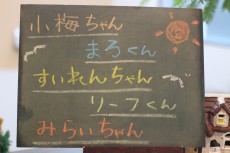 小梅ちゃん
まろくん
すいれんちゃん
リーフくん
みらいちゃん